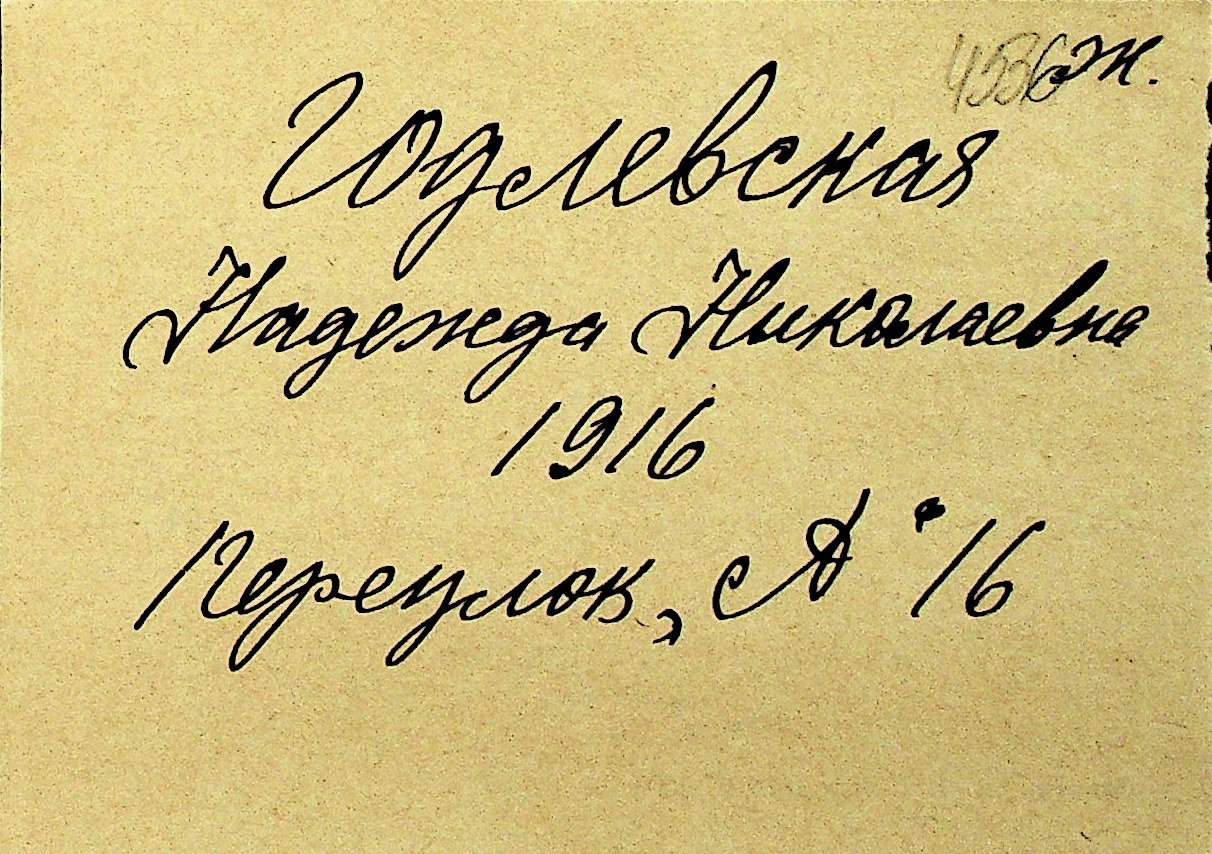 4536 ж.
Годлевская
Надежда Николаевна
1916
Переулок, А" 16